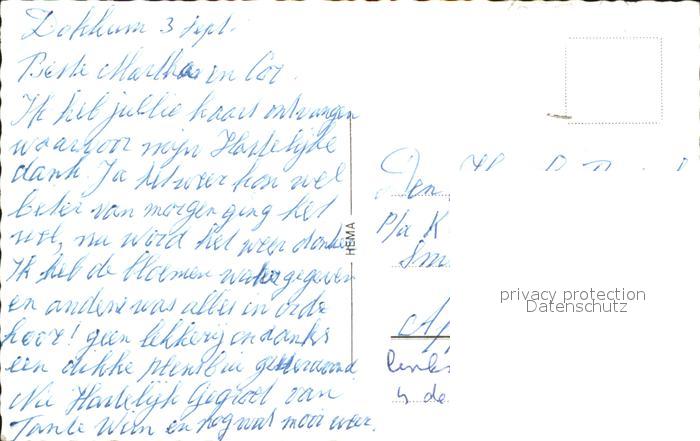 Dokkum 3 sept.
Beste Martha en Cor.
Ik heb jullie kaart ontvangen
waarvoor mijn Hartelijke
dank. Ja het weer kon wel
beter van morgen ging het
wel, nu word het weer donker
Ik heb de bloemen water gegeven
en andere was alles in orde
hoor! geen lekkerij ondanks
een dikke gisteravond
Nu Hartelijk Gegroet van
Tante Wim en nog wat mooi weer.
HEMA
Den
P/a K
privacy protection
Datenschutz
links